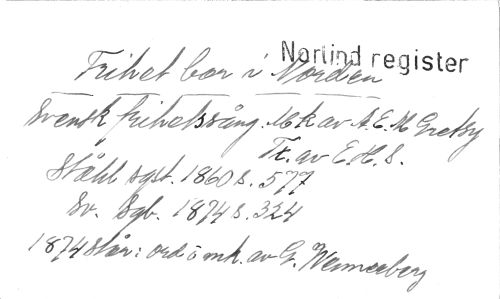 Norlind register
Frihet bor i Norden
Svensk frihetssång. Mk av A. E. M Gretry
Tx. av E. H. S.
Ståhl sgst. 1860 s. 577
Sv. Sgb. 1874 s. 324
1874 står: ord o mk. av G. Wennerberg